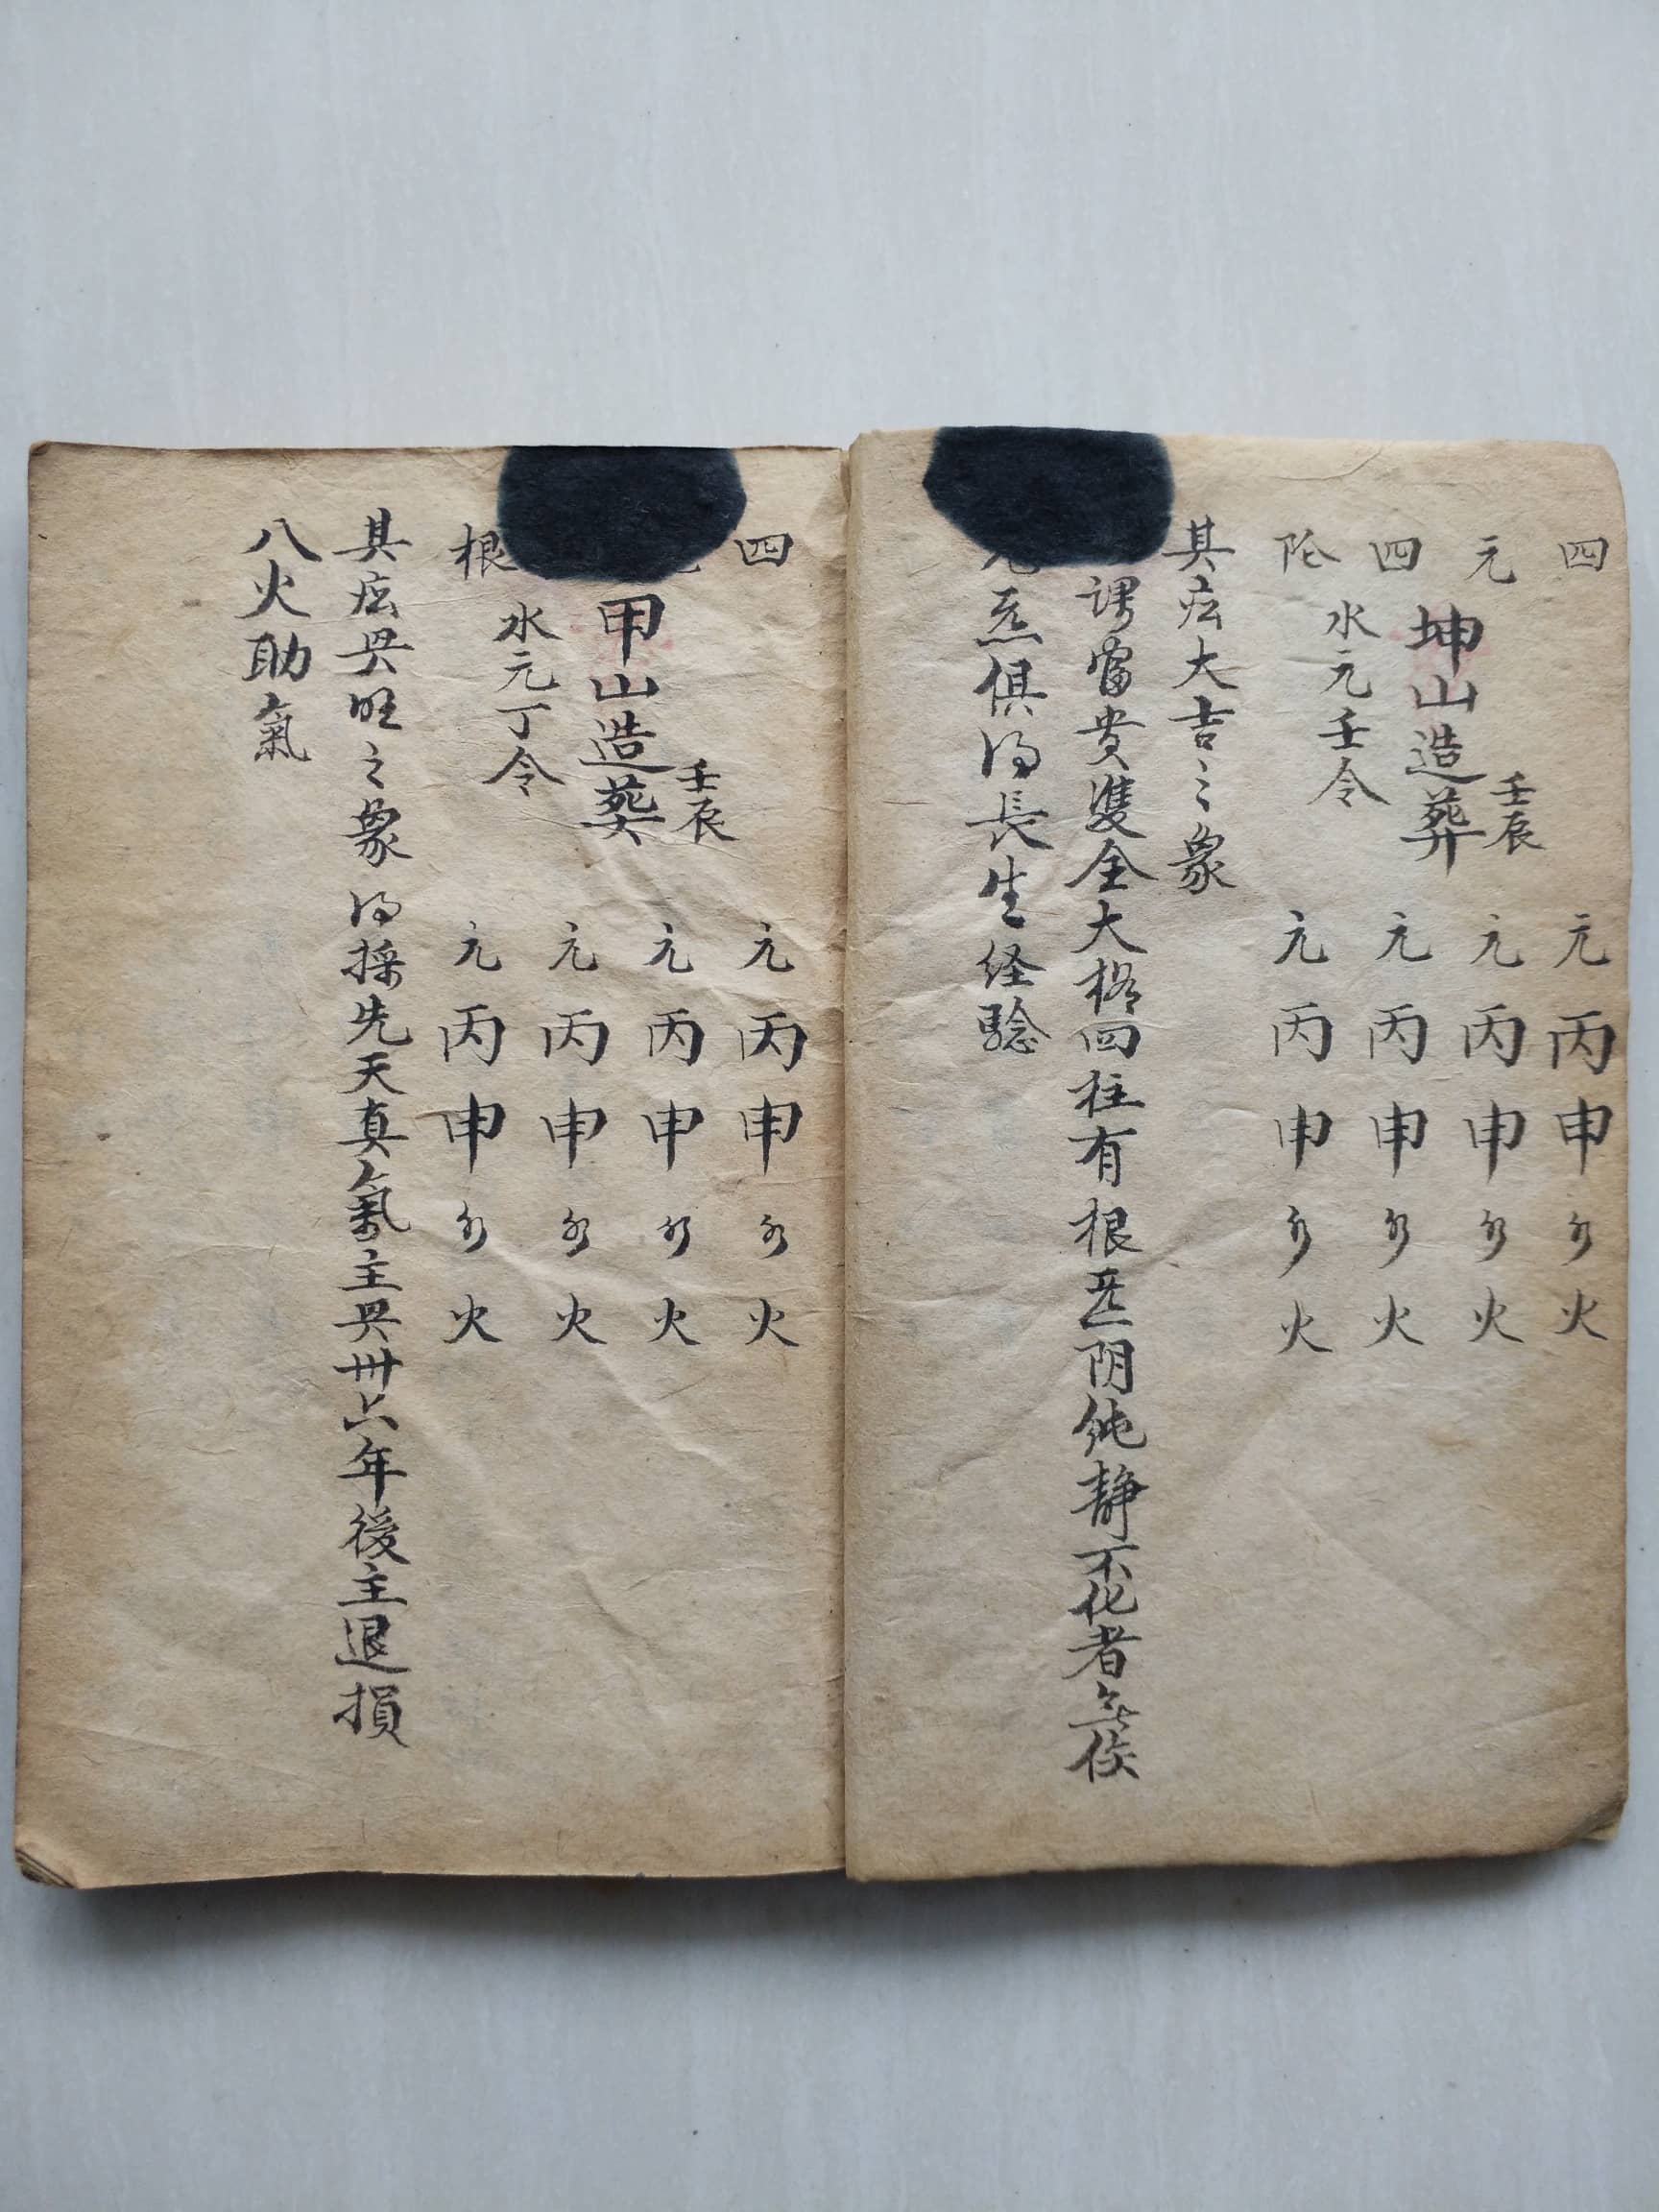 四 元丙申 火
元 元丙申 火
坤山造葬 壬辰
四 元丙申 火
水元壬令
元丙申 火
其庅大吉之象
謂富貴雙全大格四柱有根 阴 静不化者
俱得長生経驗
四 元丙申 火
元丙申 火
甲山造葬 壬辰
元丙申 火
水元丁令
根 元丙申 火
其庅 旺之象得採先天真氣主 卅六年後主退損
八火助氣